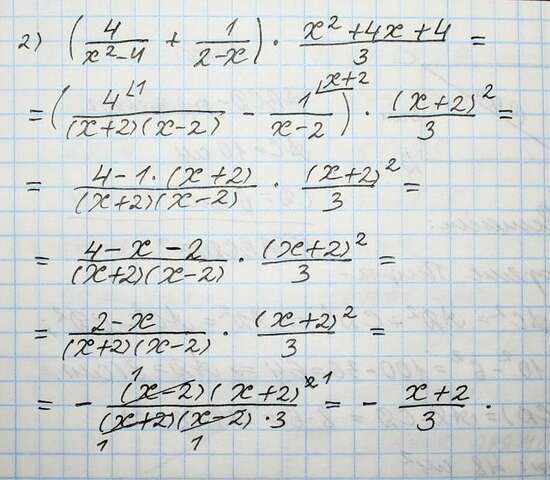 2) (4/(x²-4) + 1/(2-x)) · (x²+4x+4)/3 =
= (4^{⌊1}/((x+2)(x-2)) - 1^{⌊x+2}/(x-2)) · (x+2)²/3 =
= (4-1·(x+2))/((x+2)(x-2)) · (x+2)²/3 =
= (4-x-2)/((x+2)(x-2)) · (x+2)²/3 =
= (2-x)/((x+2)(x-2)) · (x+2)²/3 =
= - ((x-2)¹(x+2)²¹)/((x+2)₁(x-2)₁·3) = - (x+2)/3 .